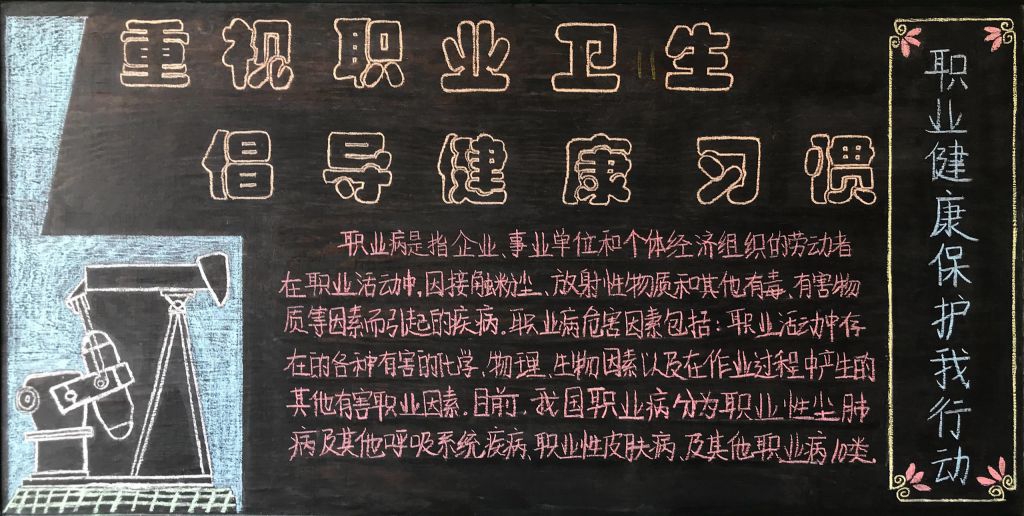 重视职业卫生
倡导健康习惯
职业病是指企业、事业单位和个体经济组织的劳动者
在职业活动中,因接触粉尘、放射性物质和其他有毒、有害物
质等因素而引起的疾病.职业病危害因素包括:职业活动中存
在的各种有害的化学、物理、生物因素以及在作业过程中产生的
其他有害职业因素.目前,我国职业病分为职业性尘肺
病及其他呼吸系统疾病、职业性皮肤病、及其他职业病10类.
职业健康保护我行动